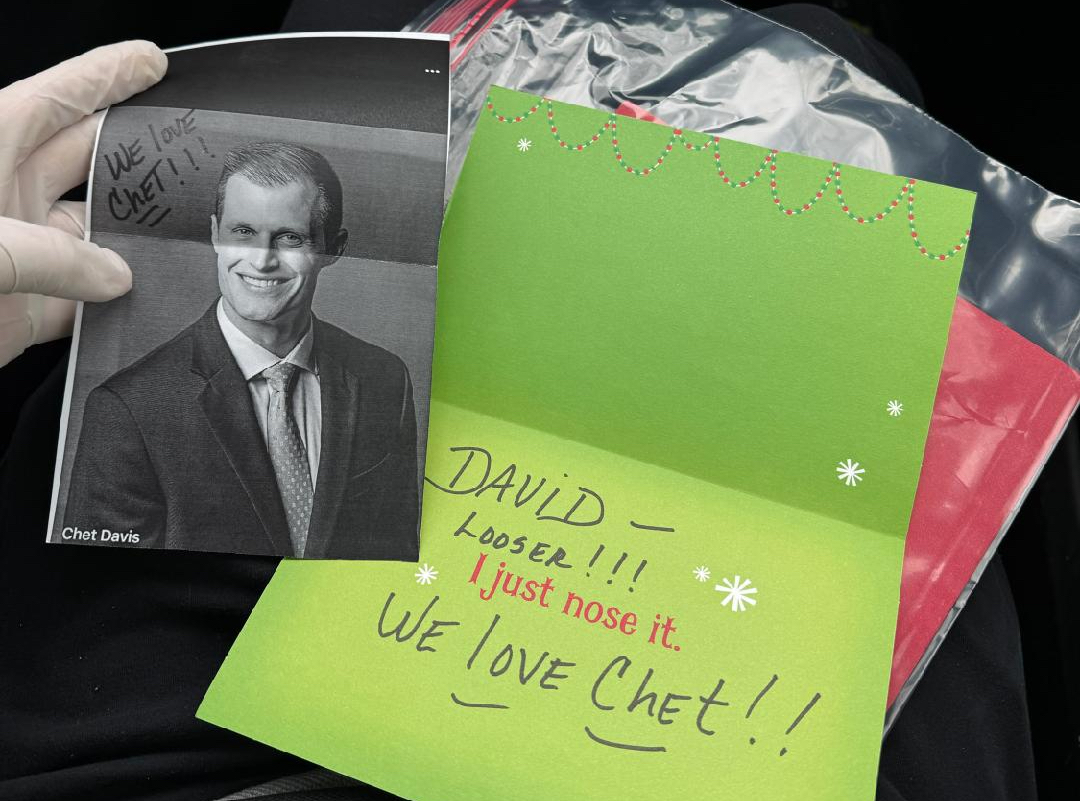 WE love
CHET!!!
Chet Davis
DAViD –
LOOSER!!!
I just nose it.
WE lovE ChEt!!